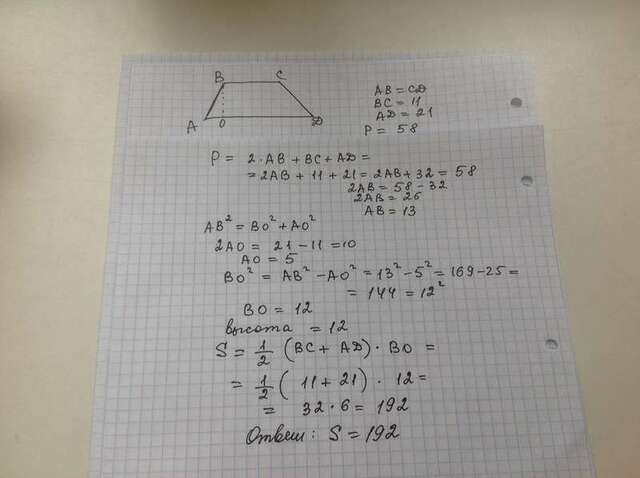 B C
A O D
AB = CD
BC = 11
AD = 21
P = 58
P = 2·AB + BC + AD =
= 2AB + 11 + 21 = 2AB + 32 = 58
2AB = 58 - 32
2AB = 26
AB = 13
AB² = BO² + AO²
2AO = 21 - 11 = 10
AO = 5
BO² = AB² - AO² = 13² - 5² = 169 - 25 =
= 144 = 12²
BO = 12
высота = 12
S = 1/2 (BC + AD) · BO =
= 1/2 (11 + 21) · 12 =
= 32 · 6 = 192
Ответ: S = 192